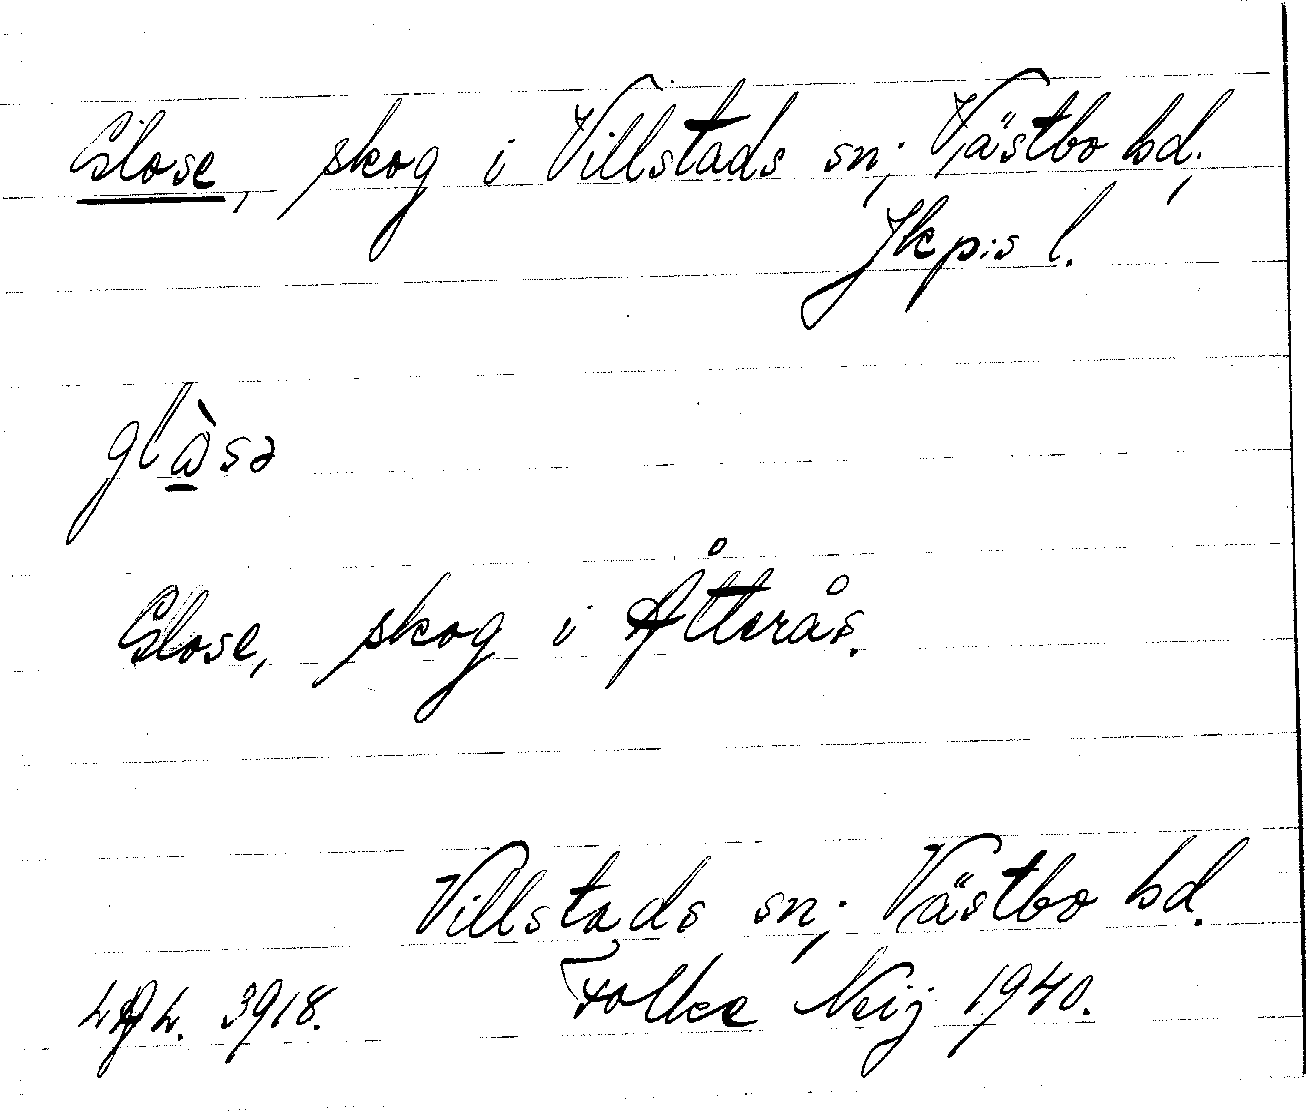 Glose, skog i Villstads sn; Västbo hd,
Jkp:s l.
glɷ̀sə
Glose, skog i Åtterås.
Villstads sn; Västbo hd.
Folke Neij 1940.
3918.